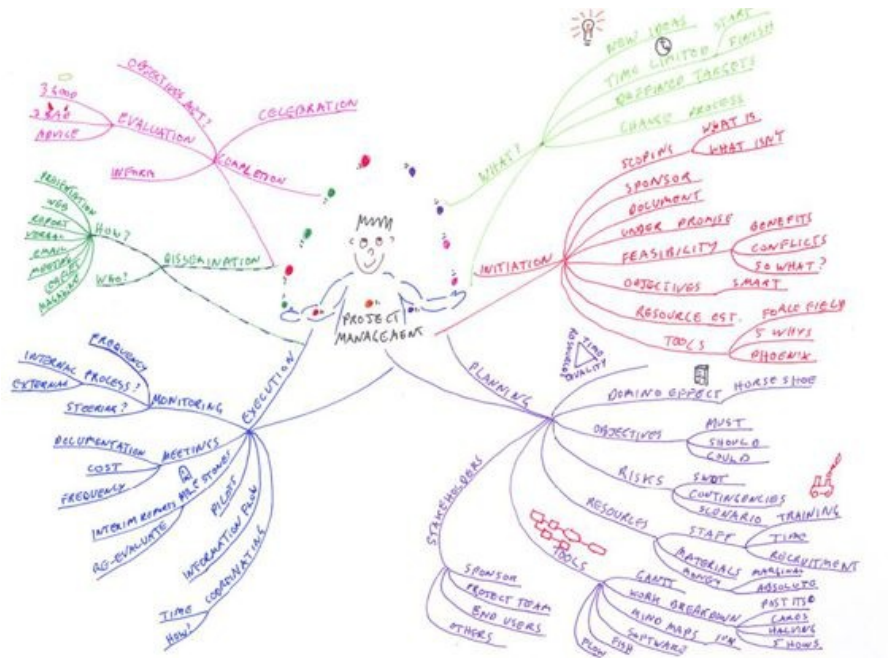 PROJECT
MANAGEMENT
WHAT?
NEW IDEAS
TIME LIMITED
START
FINISH
DEFINED TARGETS
CHANGE PROCESS
INITIATION
SCOPING
WHAT IS
WHAT ISN'T
SPONSOR
DOCUMENT
UNDER PROMISE
FEASIBILITY
BENEFITS
CONFLICTS
SO WHAT?
OBJECTIVES
SMART
RESOURCE EST.
TOOLS
FORCE FIELD
5 WHYS
PHOENIX
PLANNING
TIME
QUALITY
DOMINO EFFECT
HORSE SHOE
OBJECTIVES
MUST
SHOULD
COULD
RISKS
SWOT
CONTINGENCIES
SCENARIO
RESOURCES
STAFF
TRAINING
TIME
RECRUITMENT
MATERIALS
MONEY
MARGINAL
ABSOLUTE
TOOLS
GANTT
WORK BREAKDOWN
POST ITS
CARDS
HALVING
5 HOWS
MIND MAPS
SOFTWARE
FISH
FLOW
STAKEHOLDERS
SPONSOR
PROJECT TEAM
END USERS
OTHERS
EXECUTION
MONITORING
FREQUENCY
PROCESS?
INTERNAL
EXTERNAL
STEERING?
MEETINGS
DOCUMENTATION
COST
FREQUENCY
MILE STONES
INTERIM REPORTS
RE-EVALUATE
PILOTS
INFORMATION FLOW
COORDINATING
TIME
HOW?
DISSEMINATION
HOW?
PRESENTATION
WEB
REPORT
VERBAL
EMAIL
MEETING
MAGAZINE
WHO?
COMPLETION
OBJECTIVES MET?
CELEBRATION
EVALUATION
3 GOOD
3 BAD
ADVICE
INFORM